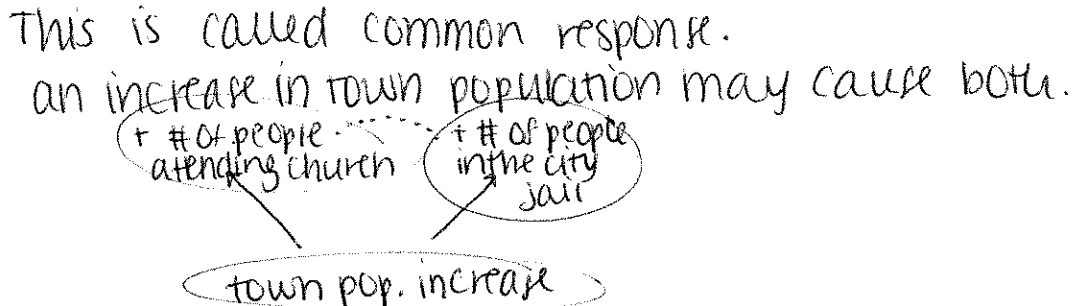 This is called common response.
an increase in town population may cause both.
+ # of people
atending church
+ # of people
in the city
jail
town pop. increase